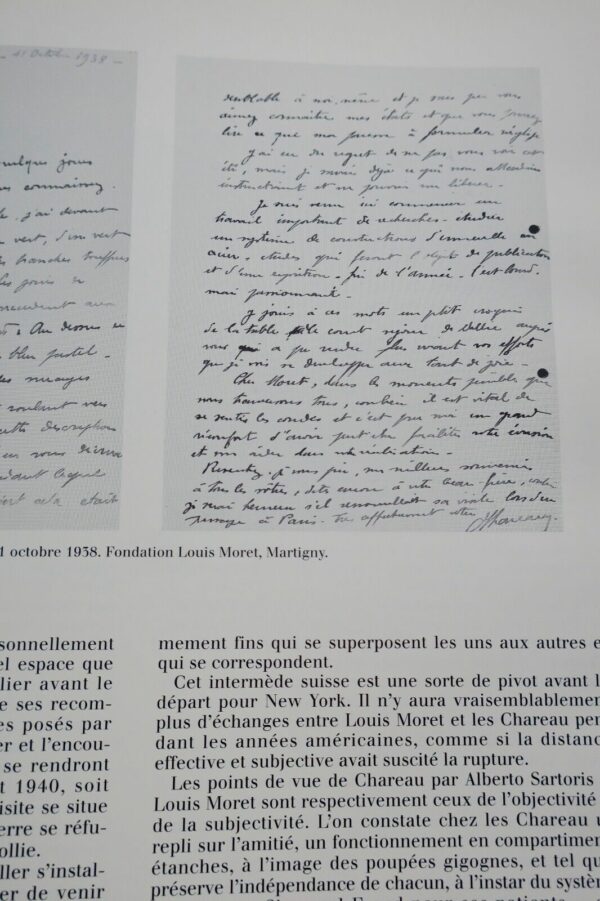 11 Octobre 1938 -
quelques jours
connaissez.
j'ai devant
vert, d'un vert
branches touffues
les joies de
Au dessus
bleu pastel -
des nuages
roulent vers
cette description
cela était
semblable à moi-même et je sais que vous
aimez connaître mes états et que vous
lire ce que ma à formuler néglige
J'ai eu du regret de ne pas vous voir cet
été, mais je savais déjà ce qui vous
et ne pouvoir me libérer -
Je suis venu ici commencer un
travail important de recherches - étudier
un système de constructions d'immeuble en
acier - études qui feront l'objet de publication
et d'une exposition - fin de l'année - C'est lourd
mais passionnant -
Je joins à ces mots un petit croquis
de la table
vous a pu rendre plus vivant vos efforts
que je vois se développer avec tant de joie -
Cher Moret, dans les moments pénibles que
nous traversons tous, combien il est vital de
se sentir les coudes et c'est pour moi un grand
réconfort d'avoir peut être facilité votre évasion
et vous aider dans votre réalisation -
Recevez, je vous prie, mes meilleurs souvenirs
à tous les vôtres, dites encore à votre beau frère,
je serai heureux s'il renouvellait sa visite lors d'un
passage à Paris - Très affectueusement votre
1 octobre 1938. Fondation Louis Moret, Martigny.
sonnellement
el espace que
lier avant le
e ses recom-
es posés par
er et l'encou-
se rendront
t 1940, soit
isite se situe
erre se réfu-
ollie.
ller s'instal-
er de venir
mement fins qui se superposent les uns aux autres e
qui se correspondent.
Cet intermède suisse est une sorte de pivot avant l
départ pour New York. Il n'y aura vraisemblablemen
plus d'échanges entre Louis Moret et les Chareau pen
dant les années américaines, comme si la distanc
effective et subjective avait suscité la rupture.
Les points de vue de Chareau par Alberto Sartoris
Louis Moret sont respectivement ceux de l'objectivité
de la subjectivité. L'on constate chez les Chareau u
repli sur l'amitié, un fonctionnement en compartimen
étanches, à l'image des poupées gigognes, et tel qu
préserve l'indépendance de chacun, à l'instar du systèm